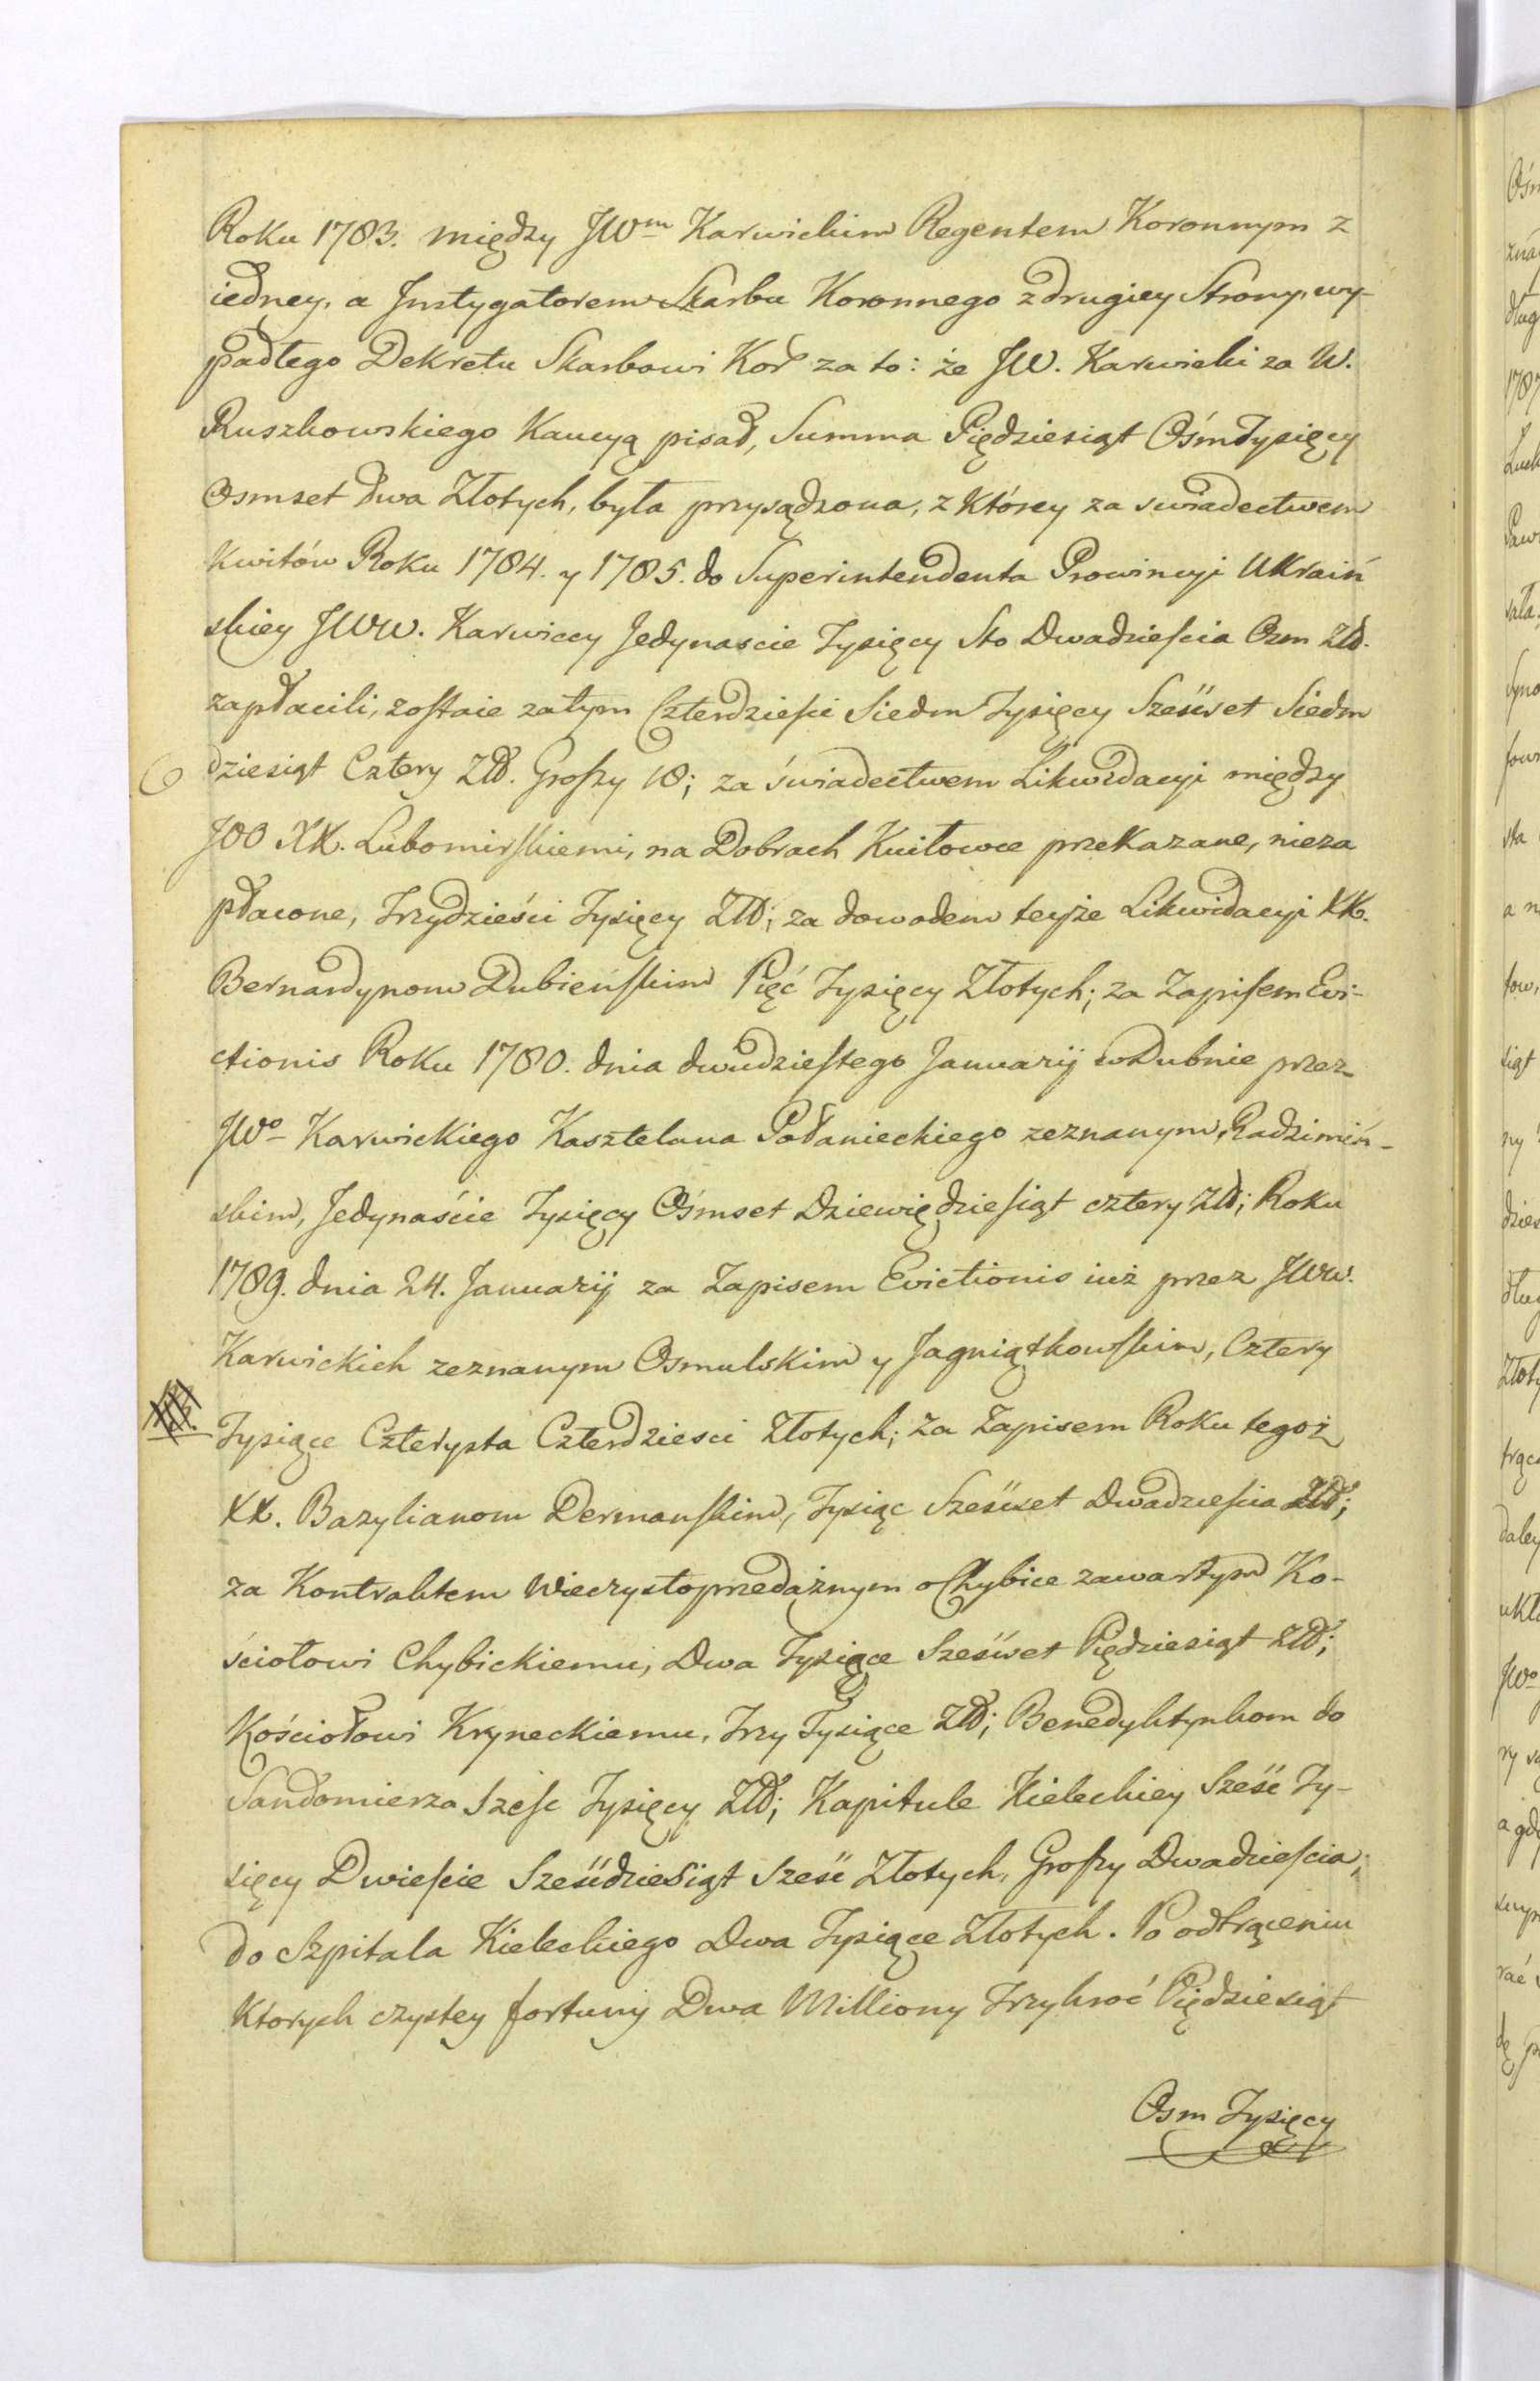 Roku 1783. między JWm Karwickim Regentem Koronnym z
iedney, a Instygatorem Skarbu Koronnego z drugiey Strony, wy-
padłego Dekretu Skarbowi Kor za to: że JW. Karwicki za W.
Ruszkowskiego Kaucyą pisał, Summa Piędziesiąt Ośm Tysięcy
Osmset dwa Złotych, była przysądzona, z Którey za swiadectwem
Kwitów Roku 1784. y 1785. do Superintendenta Prowincyi Ukraiń
skiey JWW. Karwiccy Jedynascie Tysięcy Sto Dwadzieścia Osm Złł.
zapłacili, zostaie zatym Czterdzieści Siedm Tysięcy Sześset Siedm
dziesiąt Cztery Złł. Groszy 18; za świadectwem Likwidacyi między
JOO XX. Lubomirskiemi, na Dobrach Kuitowce przekazane, nieza
płacone, Trzydzieści Tysięcy Złł; za dowodem teyże Likwidacyi XX.
Bernardynom Dubieńskim Pięć Tysięcy Złotych; za Zapisem Evi-
ctionis Roku 1780. dnia dwudziestego Januarij w Dubnie przez
JWo Karwickiego Kasztelana Połanieckiego zeznanym, Radzimiń-
skim, Jedynaście Tysięcy Ośmset Dziewiędziesiąt cztery Złł; Roku
1789. dnia 24. Januarij za Zapisem Evictionis iuż przez JWW.
Karwickich zeznanym Osmulskim y Jagniątkowskim, Cztery
Tysiące Czterysta Czterdziesci Złotych; za Zapisem Roku tegoż
XX. Bazylianom Dermanskim, Tysiąc Sześset Dwadzieścia Złł;
za Kontraktem Wieczystoprzedażnym o Chybice zawartym Ko-
ściołowi Chybickiemu, Dwa Tysiące Sześset Piędziesiąt Złł;
Kościołowi Kryneckiemu, Trzy Tysiące Złł; Benedyktynkom do
Sandomierza Szesc Tysięcy Złł; Kapitule Kieleckiey Sześć Ty-
sięcy Dwieście Sześćdziesiąt Sześć Złotych, Groszy Dwadzieścia;
do Szpitala Kieleckiego Dwa Tysiące Złotych. Po odtrąceniu
Ktorych czystey fortuny Dwa Milliony Trzykroć Piędziesiąt
Osm Tysięcy